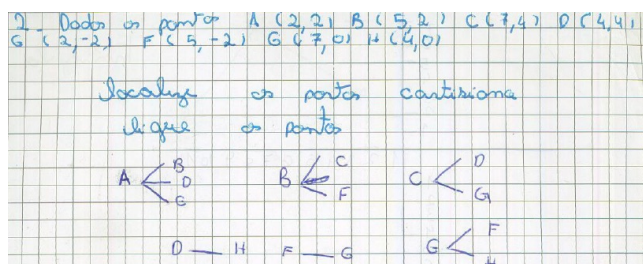 2 - Dados os pontos A (2,2) B (5,2) C (7,4) D (4,4)
G (2,-2) F (5,-2) G (7,0) H (4,0)
localize os pontos cartisiona
ligue os pontos
A B D G B C F C D G
D — H F — G G F H